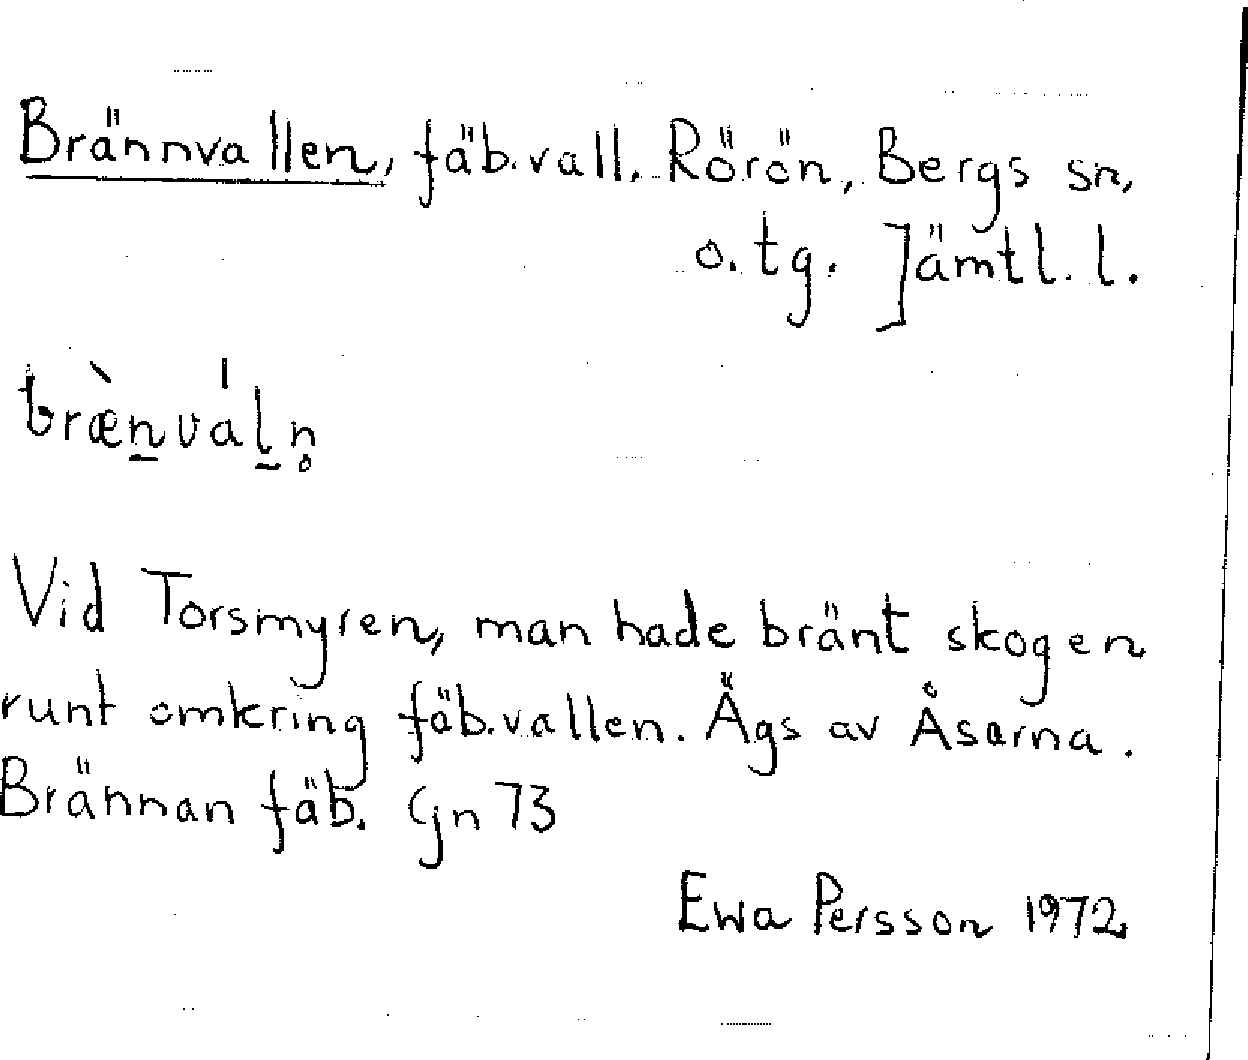 Brännvallen, fäb.vall. Rörön, Bergs sn,
o. tg. Jämtl. l.
bræ̀n̲vál̲n̥
Vid Torsmyren, man hade bränt skogen
runt omkring fäb.vallen. Ägs av Åsarna.
Brännan fäb. Gn 73
Ewa Persson 1972